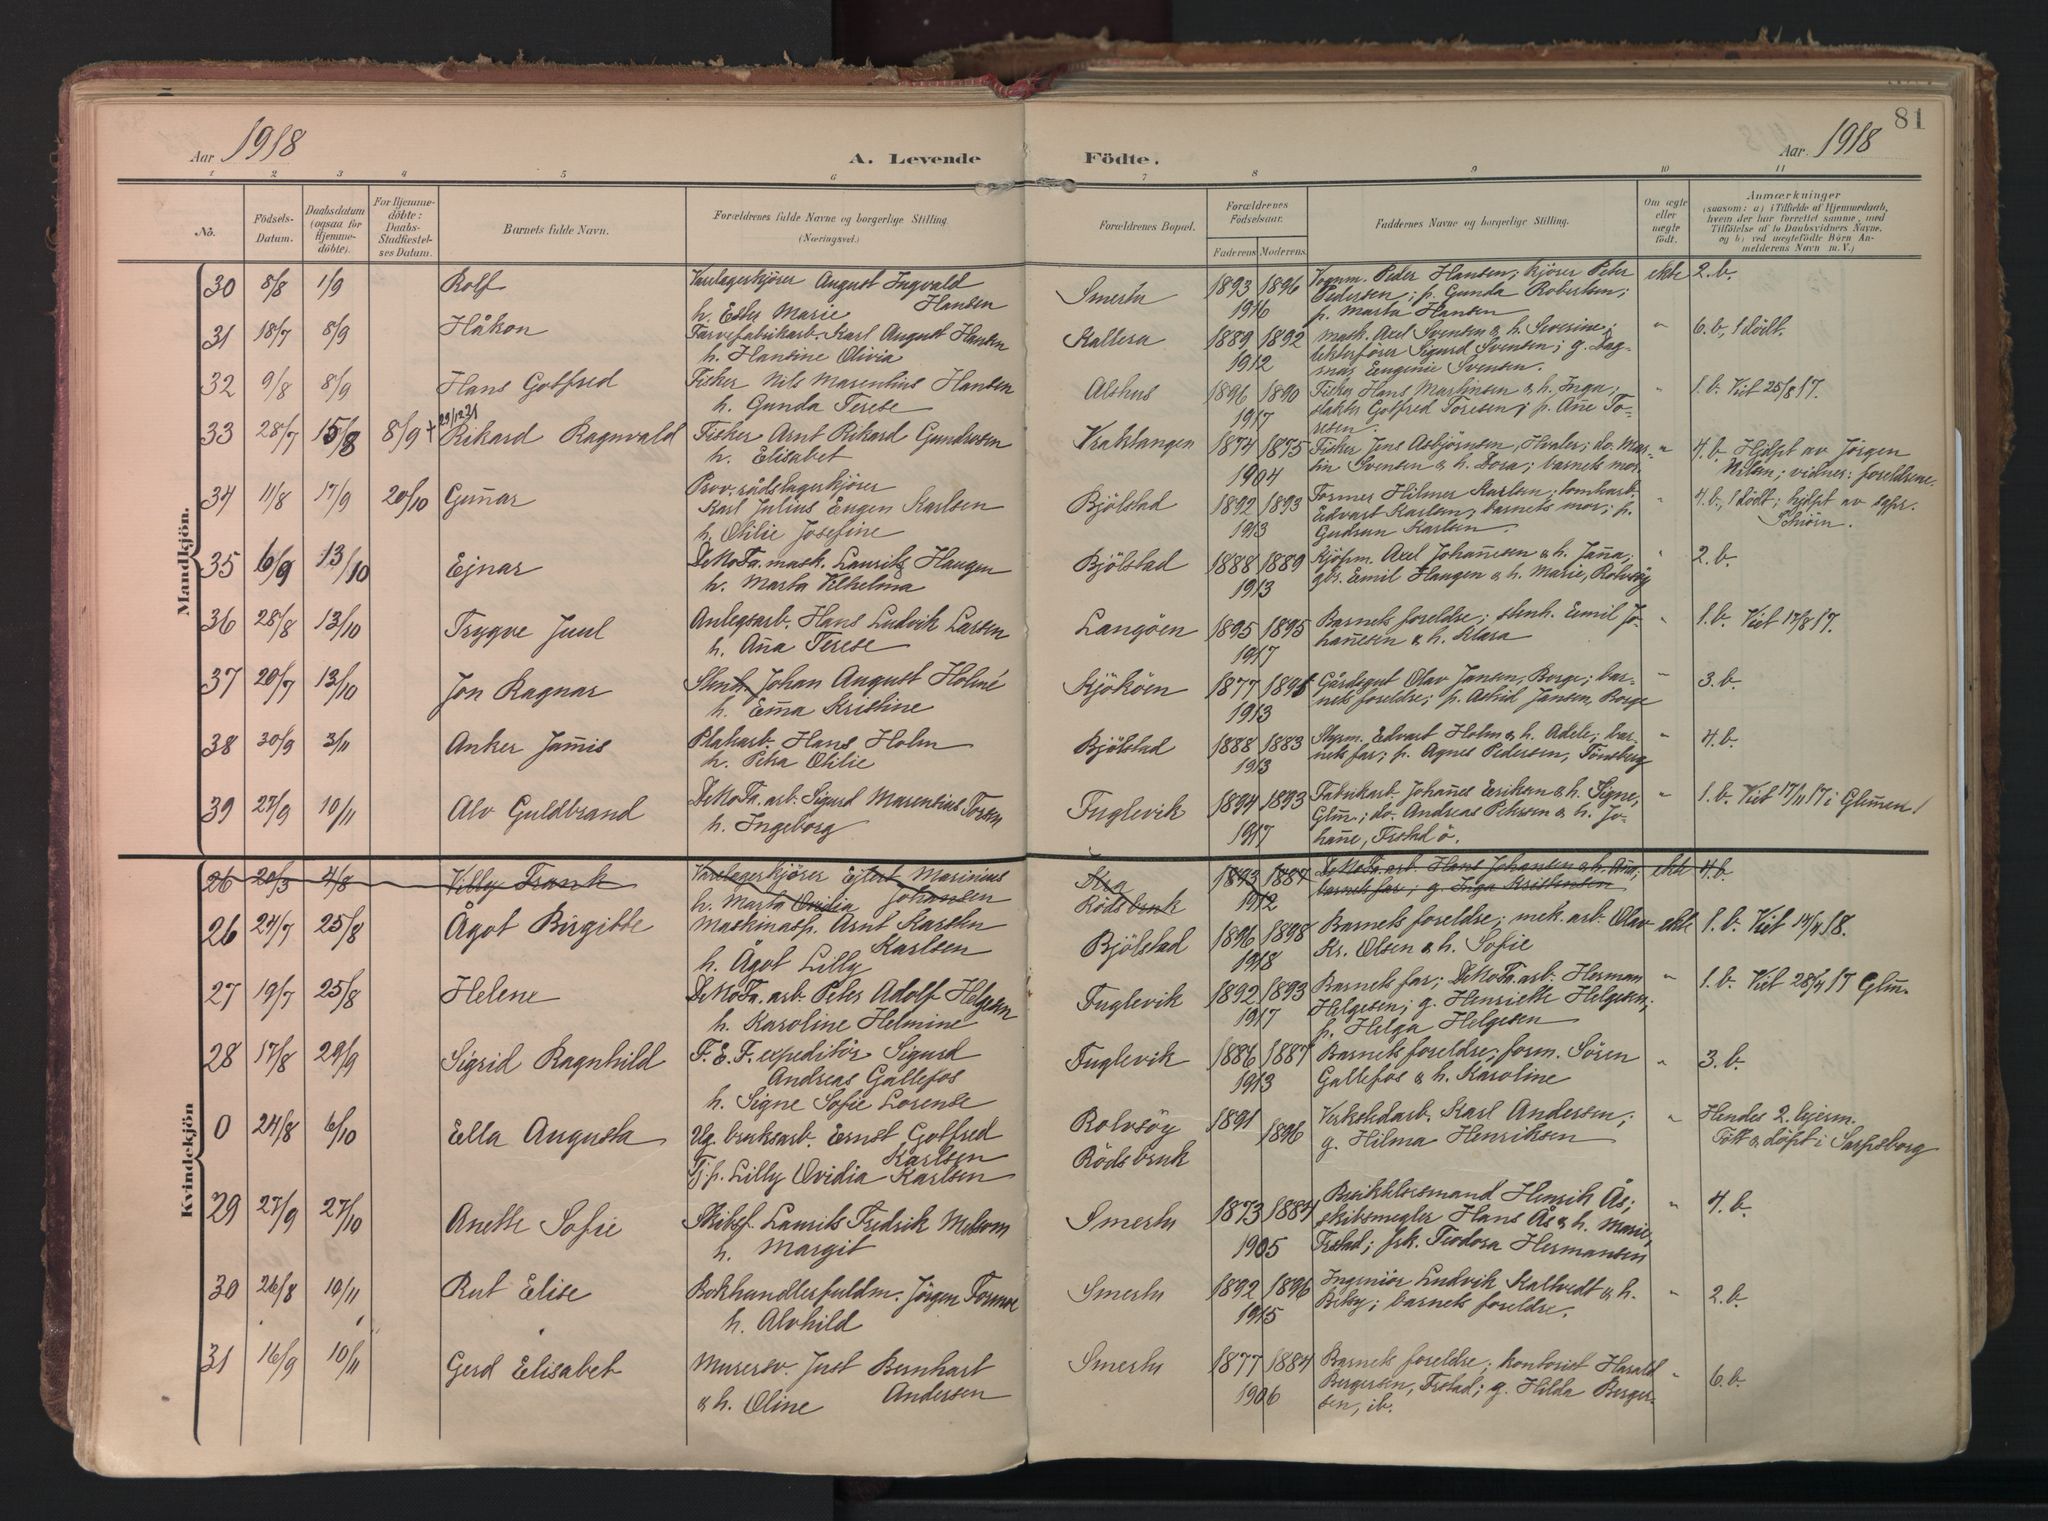 81
Aar 1918
A. Levende Födte.
Aar 1918
1 2 3 4 5 6 7 8 9 10 11
No.
Födsels-Datum.
Daabsdatum (ogsaa for Hjemme-döbte).
For Hjemme-döbte: Daabs-Stadfæstel-ses Datum.
Barnets fulde Navn.
Forældrenes fulde Navne og borgerlige Stilling. (Næringsvei.)
Forældrenes Bopæl.
Forældrenes Födselsaar.
Faderens Moderens.
Faddernes Navne og borgerlige Stilling.
Om ægte eller uægte födt.
Anmærkninger
(saasom: a) i Tilfælde af Hjemmedaab, hvem der har forrettet samme, med Tilföielse af to Daabsvidners Navne, og b) ved uægtefödte Börn An-melderens Navn m. V.)
Mandkjön.
30 8/8 1/9 Rolf Varelagerkjörer August Ingvald Hansen h. Ester Marie Smertu 1893 1896 1916 Vognm. Peder Hansen; kjörer Peter Pedersen; p. Gunda Robertsen; p. Marta Hansen ekte 2. b.
31 18/7 8/9 Håkon Farvefabrikarb. Karl August Hansen h. Hansine Olivia Kallera 1889 1892 1912 mask. Axel Svensen & h. Severine; lekterförer Sigurd Svensen; g. Dag-mar Eugenie Svensen. " 6. b., 1 dödt.
32 9/8 8/9 Hans Gotfred Fisker Nils Marentius Hansen h. Gunda Terese Alshus 1896 1890 1917 Fisker Hans Martinsen & h. Inga; slakter Gotfred Toresen; p. Ane To-resen. " 1. b. Viet 25/8 17.
33 28/7 15/8 8/9 + 29/12 31 Rikard Ragnvald Fisker Arnt Rikard Gundersen h. Elisabet Kraklangen 1874 1875 1904 Fisker Jens Asbjörnsen, Hvaler; do. Mar-tin Svensen & h. Dora; barnets mor. " 4. b. Hjdöpt av Jörgen Nilsen; vidner: foreldrene.
34 11/8 17/9 20/10 Gunar Prov. rådslagerkjörer Karl Julius Eugen Karlsen h. Otilie Josefine Bjölstad 1892 1893 1913 Former Hilmer Karlsen; tomtarb. Edvart Karlsen; barnets mor; p. Gudrun Karlsen. " 4. b., 1 dödt; hjdöpt av sgpr. Schiörn.
35 6/9 13/10 Ejnar DeNoFa. mask. Laurits Haugen h. Marta Vilhelmina Bjölstad 1888 1889 1913 Kjöpm. Axel Johanesen & h. Jana; gbr. Emil Haugen & h. Marie, Rolvsöy " 2. b.
36 28/8 13/10 Trygve Juul Anlegsarb. Hans Ludvik Larsen h. Ana Terese Langöen 1895 1895 1917 Barnets foreldre; stenh. Emil Jo-hanesen & h. Klara " 1. b. Viet 17/8 17.
37 20/7 13/10 Jon Ragnar Stenh. Johan August Holmé h. Ema Kristine Kjököen 1877 1891 1913 Gårdsgut Olav Jansen, Borge; bar-nets foreldre; p. Astrid Jansen, Borge " 3. b.
38 30/9 3/11 Anker Jamis Platearb. Hans Holm h. Petra Otilie Bjölstad 1888 1883 1913 Styrm. Edvart Holm & h. Adele; bar-nets far; p. Agnes Pedersen, Tönsberg " 4. b.
39 27/9 10/11 Alv Guldbrand DeNoFa. arb. Sigurd Marentius Torsen h. Ingeborg Fuglevik 1894 1893 1917 Fabrikarb. Johanes Eriksen & h. Signe, Glm.; do. Andreas Petersen & h. Jo-hane, Frstad ö. " 1. b. Viet 17/11 17 i Glemen!
Kvindekjön
26 20/3 4/8 Villy Frank Varelagerkjörer Ejlert Marinius Johansen h. Marta Ovidia Kra Rödsbruk 1893 1884 1912 DeNoFa. arb. Hans Johansen & h. Ana; barnets far; g. Inga Kristensen ekte 4. b.
26 24/7 25/8 Ågot Birgitte Maskinasp. Arnt Karsten Karlsen h. Ågot Lilly Bjölstad 1896 1898 1918 Barnets foreldre; mek. arb. Olav Kr. Olsen & h. Sofie ekte 1. b. Viet 14/4 18.
27 19/7 25/8 Helene DeNoFa. arb. Peter Adolf Helgesen h. Karoline Helmine Fuglevik 1892 1893 1917 Barnets far; DeNoFa. arb. Herman Helgesen; g. Henriette Helgesen; p. Helga Helgesen " 1. b. Viet 28/4 17 Glm.
28 17/8 29/9 Sigrid Ragnhild F. E. F. expeditör Sigurd Andreas Gallefos h. Signe Sofie Lorense Fuglevik 1886 1887 1913 Barnets foreldre; form. Sören Gallefos & h. Karoline " 3. b.
0 24/8 6/10 Ella Augusta Ug. bruksarb. Ernst Gotfred Karlsen Tj. p. Lilly Ovidia Karlsen Rolvsöy Rödsbruk 1891 1896 Verkstedarb. Karl Andersen; g. Hilma Henriksen " Hendes 2. hjem. Födt & döpt i Sarpsborg
29 27/9 27/10 Anette Sofie Skibsf. Laurits Fredrik Melsom h. Margit Smertu 1873 1884 1905 Bruikkersmand Henrik Ås; skibsmegler Hans Ås & h. Marie, Frstad; frk. Teodora Hermansen " 4. b.
30 26/8 10/11 Rut Elise Bokhandlerfuldm. Jörgen Tormoe h. Alvhild Smertu 1892 1896 1915 Ingeniör Ludvik Kaltvedt & h. Betsy; barnets foreldre. " 2. b.
31 16/9 10/11 Gerd Elisabet Murersv. Just Bernhart Andersen & h. Oline Smertu 1877 1884 1906 Barnets foreldre; kontorist Harald Bergersen, Frstad; g. Hilda Berger-sen, ib. " 6. b.